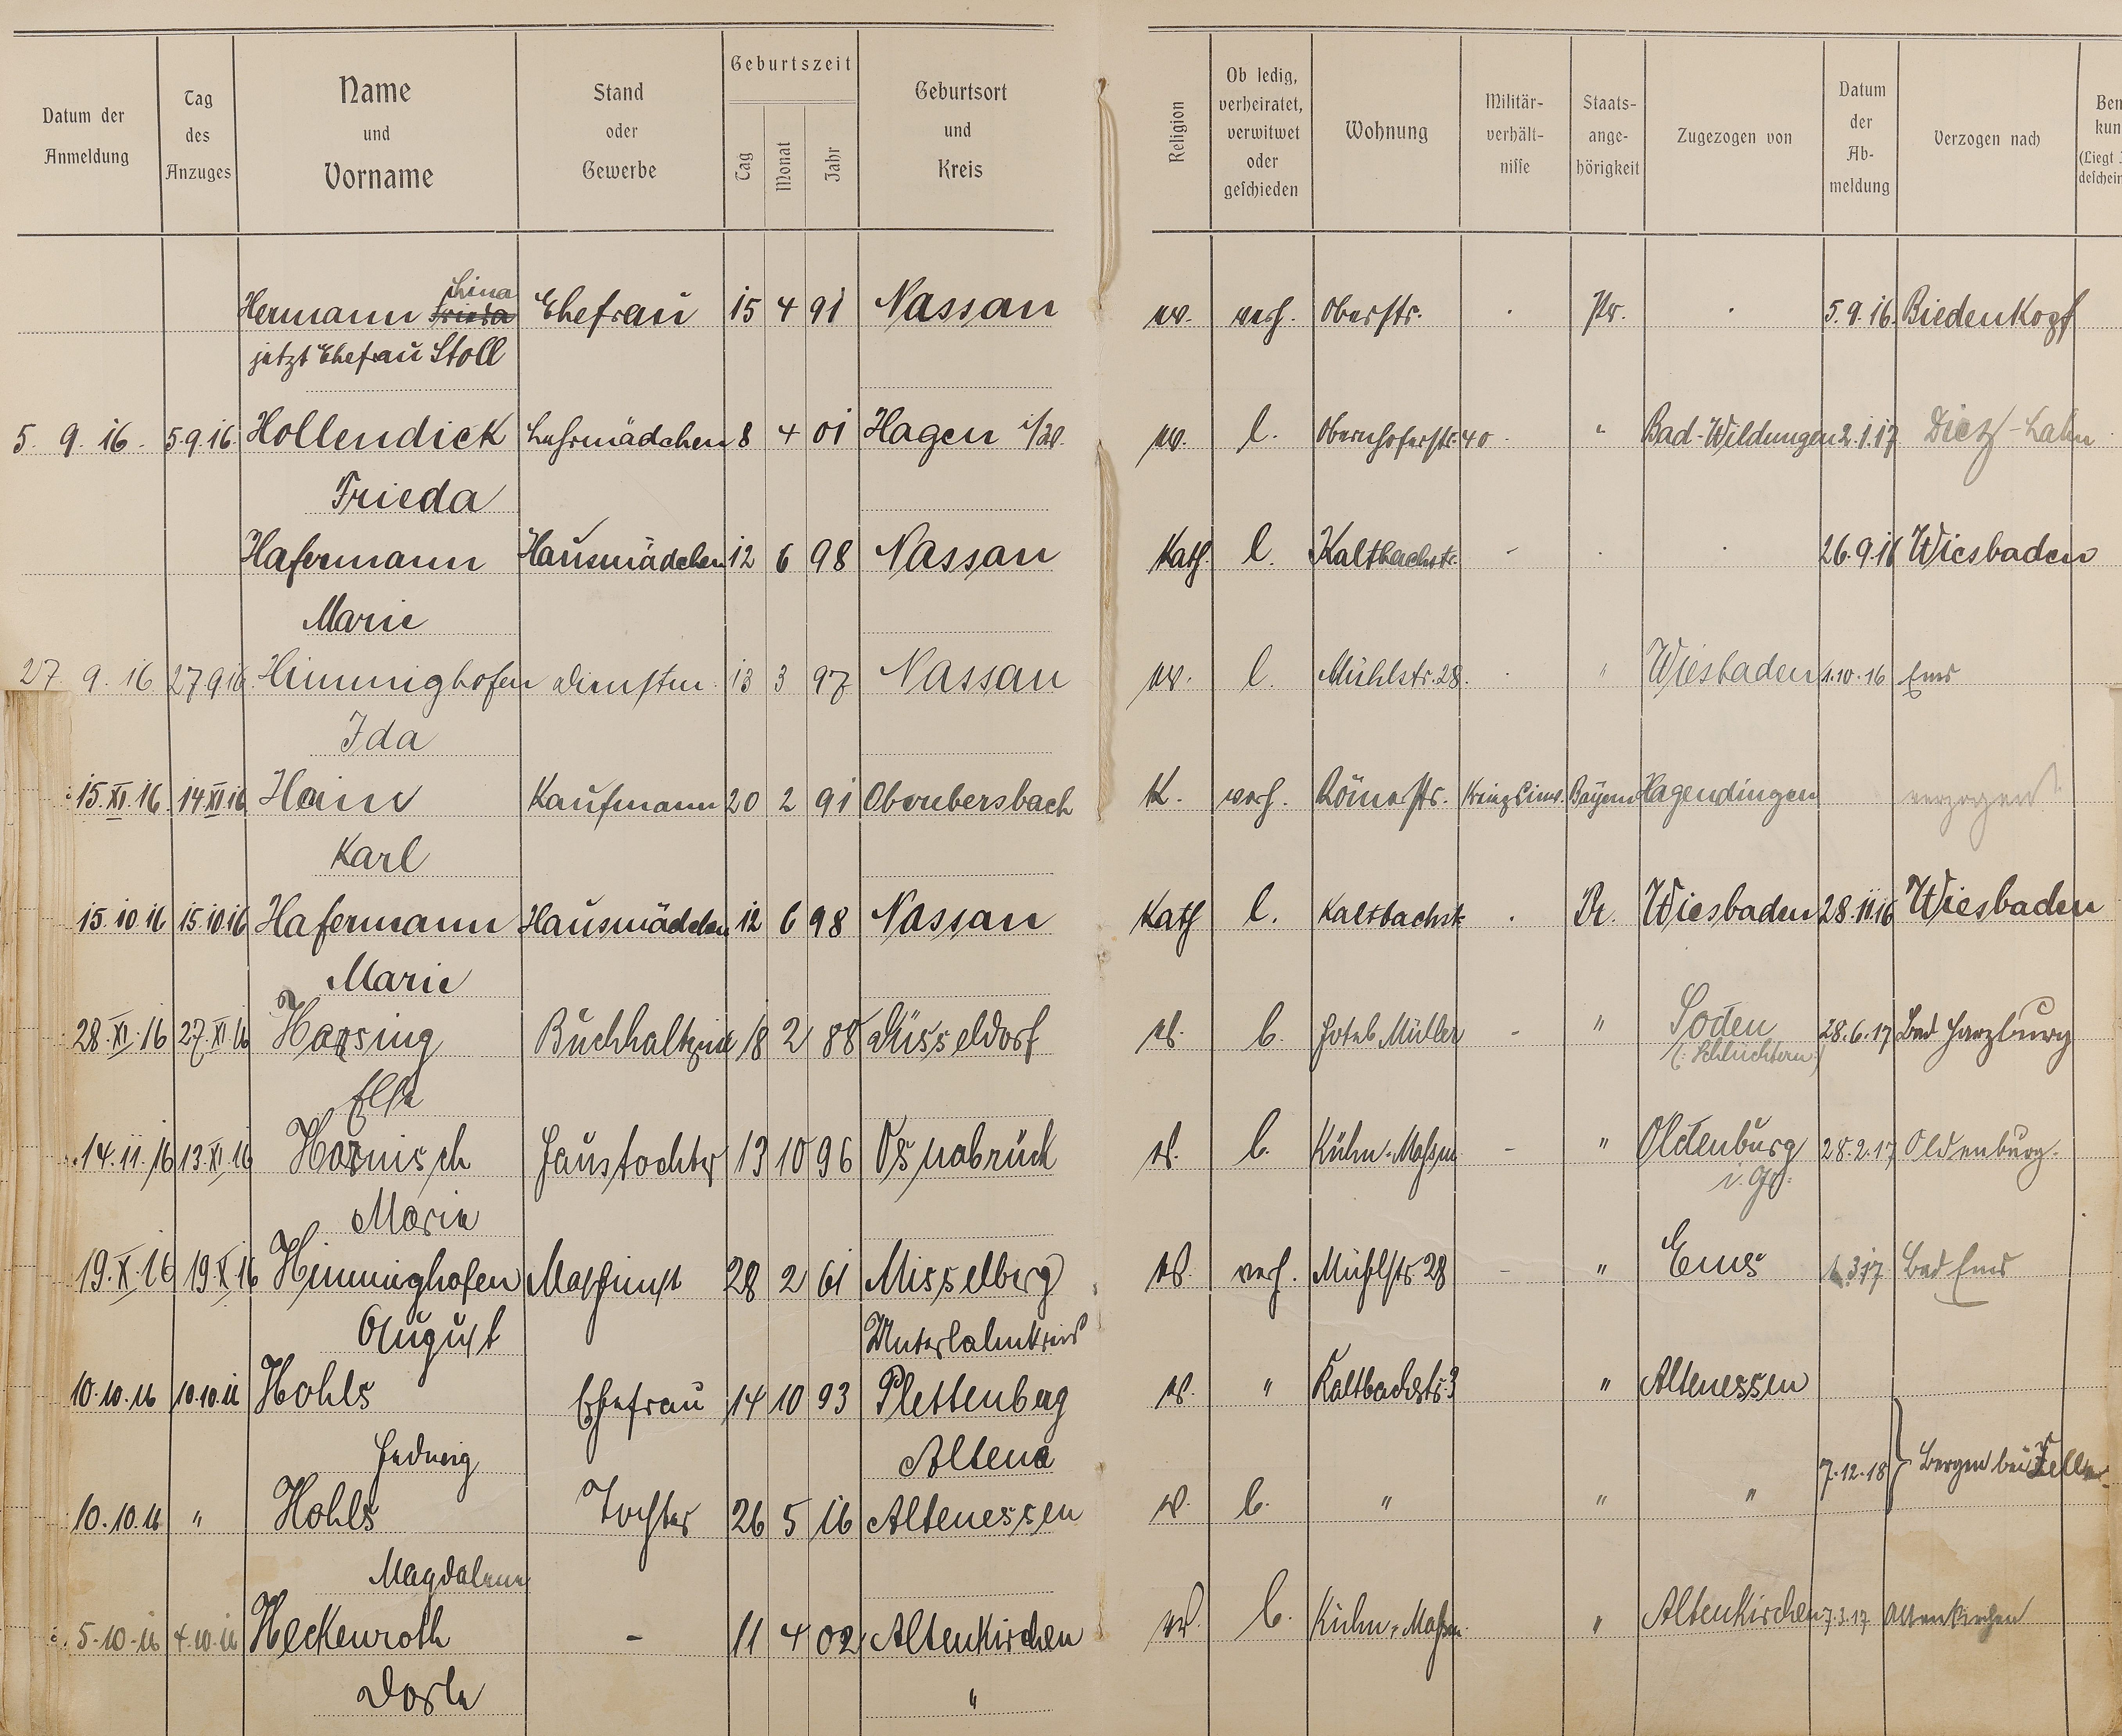 Datum der Anmeldung | Tag des Anzuges | Name und Vorname | Stand oder Gewerbe | Geburtszeit Tag Monat Jahr | Geburtsort und Kreis | Religion | Ob ledig, verheiratet, verwitwet oder geschieden | Wohnung | Militär-verhält-nisse | Staats-ange-hörigkeit | Zugezogen von | Datum der Ab-meldung | Verzogen nach
Lina
Hermann Frieda Ehefrau 15 4 91 Nassau ev. verh. Oberstr. Pr. 5.9.16. Biedenkopf
jetzt Ehefrau Stoll
5. 9. 16. 5.9.16. Hollendick Lehrmädchen 8 4 01 Hagen i/W. ev. l. Obernhoferstr. 40 " Bad-Wildungen 2.1.17 Diez-Lahn
Frieda
Hafermann Hausmädchen 12 6 98 Nassau Kath. l. Kaltbachstr. - 26.9.16 Wiesbaden
Marie
27. 9. 16 27.9.16. Himmighofen 13 3 97 Nassau ev. l. Mühlstr. 28. " Wiesbaden 1.10.16 Ems
Ida
15.XI.16. 14.XI.16 Hain Kaufmann 20 2 91 K. verh. Römerstr. Bayern Hagendingen verzogen
Karl
15.10.16 15.10.16 Hafermann Hausmädchen 12 6 98 Nassau Kath l. Kaltbachstr. Pr. Wiesbaden 28.11.16 Wiesbaden
Marie
28.XI.16 27.XI.16 Harsing Buchhalterin 18 2 88 Düsseldorf ev. l. Hotel Müller - " Soden 28.6.17 Bad Harzburg
(: Schlüchtern :)
Else
14.11.16 13.XI.16 Hornisch Haustochter 13 10 96 Osnabrück ev. l. - " Oldenburg 28.2.17 Oldenburg.
i. Gr.
Marie
19.X.16 19.X.16 Himmighofen Maschinist 28 2 61 Misselberg ev. verh. Mühlstr. 28 - " Ems 3.17 Bad Ems
August Unterlahnkreis
10.10.16 10.10.16 Hohls Ehefrau 14 10 93 Plettenberg ev. " Kaltbachstr. 3 " Altenessen
Hedwig Altena
7.12.18 } Bergen bei
10.10.16 " Hohls Tochter 26 5 16 Altenessen ev. l. " " "
Magdalene
5.10.16 4.10.16 Heckenroth - 11 4 02 Altenkirchen ev. l. " Altenkirchen 7.3.17 Altenkirchen
"